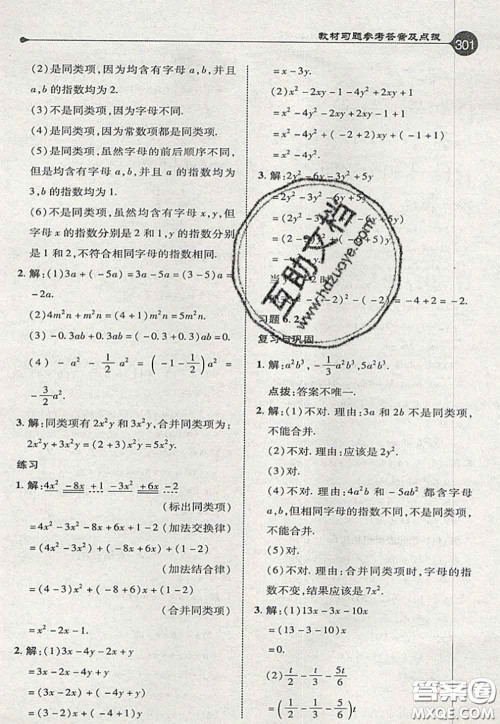 教材习题参考答案及点拨
301
(2)是同类项,因为均含有字母 a,b,并且
的指数均为 2.
(3)不是同类项,因为字母不同.
(4)是同类项,因为常数项都是同类项.
(5)是同类项,虽然字母的前后顺序不同,
但是均含有字母 a,b,并且 a 的指数均为
3,b 的指数均为 1.
(6)不是同类项,虽然均含有字母 x,y,但 x
的指数分别是 2 和 1,y 的指数分别是
1 和 2,不符合相同字母的指数相同.
2. 解:(1)3a+(-5a)=3a-5a=(3-5)a=
-2a.
(2)4m²n+m²n=(4+1)m²n=5m²n.
(3)-0.3ab+0.3ab=(-0.3+0.3)ab=0.
(4) -a²-1/2a²=(-1-1/2)a²=
-3/2a².
3. 解:同类项有 2x²y 和 3x²y,合并同类项为:
2x²y+3x²y=(2+3)x²y=5x²y.
练习
1. 解:4x²-8x+1-3x²+6x-2
(标出同类项)
=4x²-3x²-8x+6x+1-2
(加法交换律)
=(4x²-3x²)+(-8x+6x)+(1-2)
(加法结合律)
=(4-3)x²+(-8+6)x+(1-2)
(合并同类项)
=x²-2x-1.
2. 解:(1)x-2y+2x-y
=x+2x-2y-y
=x-3y.
(2)x²-2xy-1-2xy+t
=x²-2xy-2xy+t-1
=x²+(-2-2)xy+t-1
=x²-4xy+t-1.
3. 解:2y²-6y-3y²+5y
=2y²-3y²-6y+5y
=(2y²
=(2-
=-y²
当
-(-2)²-(-2)=-4+2=-2.
习题 6.2
复习与巩固
1. 解:a²b³,-1/3a²b³,5a²b³.
点拨:答案不唯一.
2. 解:(1)不对. 理由:3a 和 2b 不是同类项,
不能合并.
(2)不对. 理由:应该是 2y².
(3)对.
(4)不对. 理由:4a²b 和 -5ab² 都含字母
a,b,但相同字母的指数不同,不是同类项,
不能合并.
(5)对.
(6)不对. 理由:合并同类项时,字母的指
数不变,结果应该是 7x².
3. 解:(1)13x-3x-10x
=(13-3-10)x
=0.
(2) t/2-t/3-5t/6
=(1/2-1/3-5/6)t
互助文档
www.hdzuoye.com
答案圈
MXQE.COM